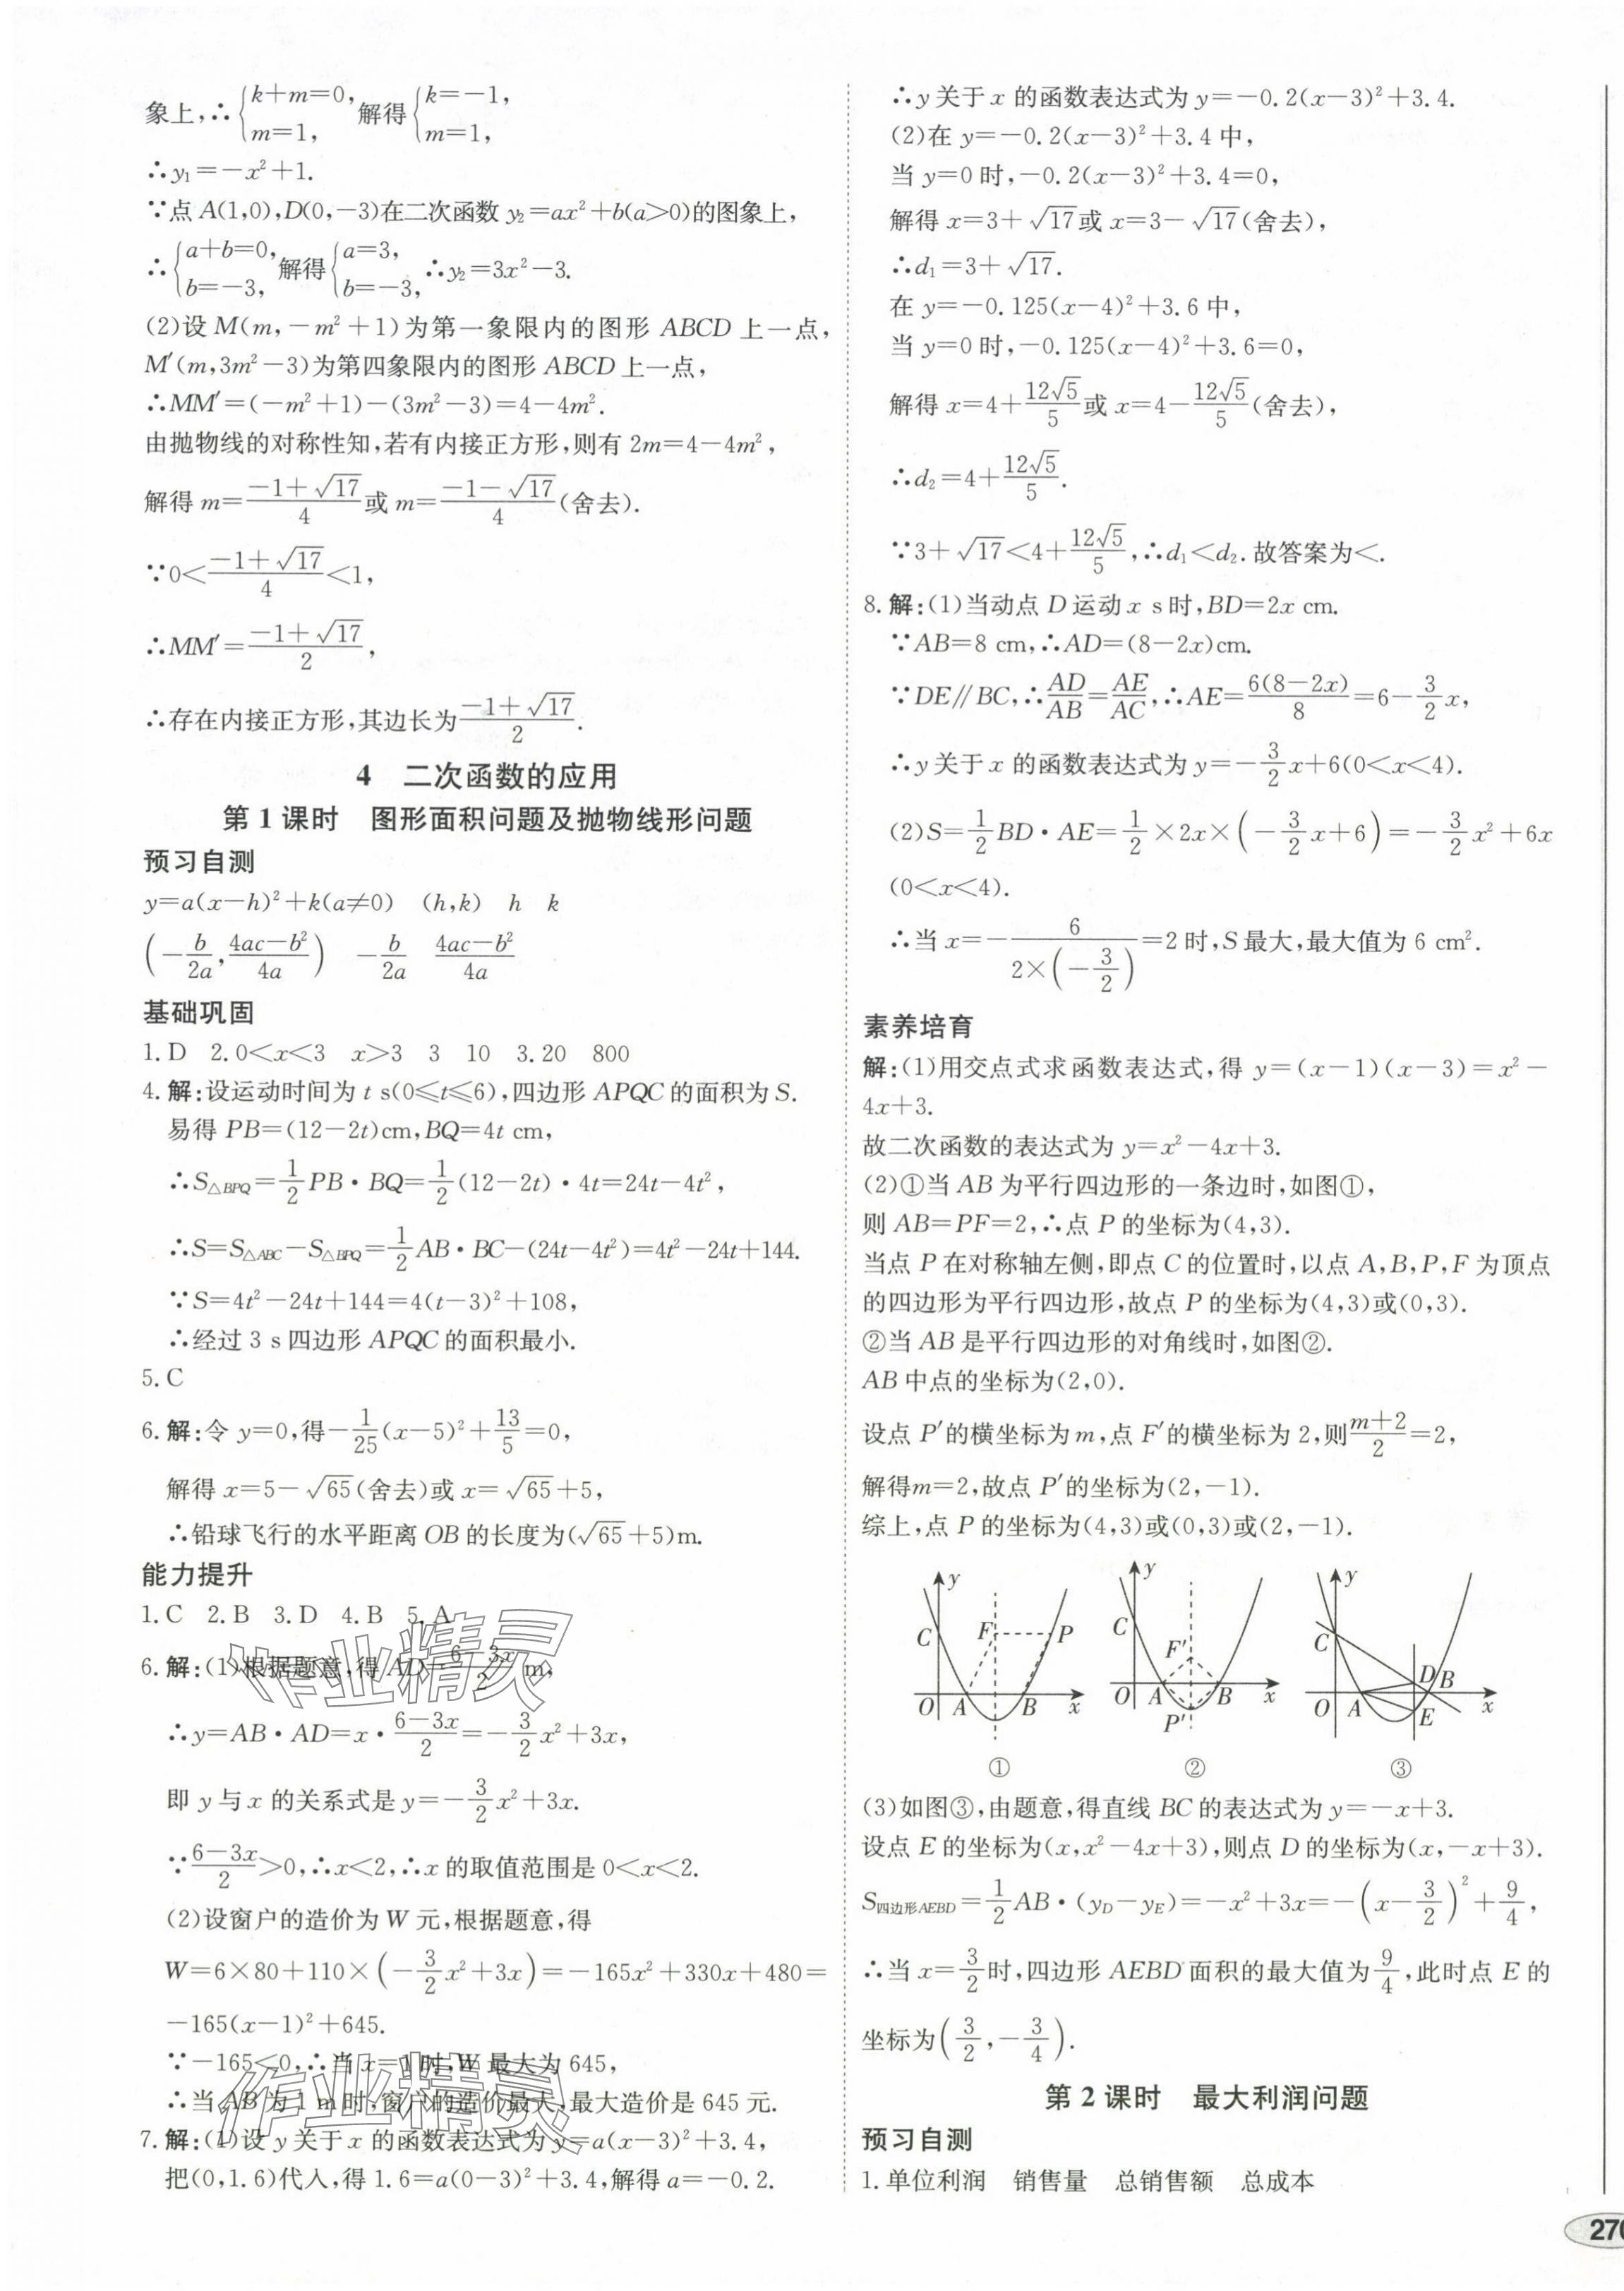 象上,∴{k+m=0, m=1, 解得{k=-1, m=1,
∴y₁=-x²+1.
∵点 A(1,0),D(0,-3)在二次函数 y₂=ax²+b(a>0)的图象上,
∴{a+b=0, b=-3, 解得{a=3, b=-3, ∴y₂=3x²-3.
(2)设 M(m,-m²+1)为第一象限内的图形 ABCD 上一点,
M′(m,3m²-3)为第四象限内的图形 ABCD 上一点,
∴MM′=(-m²+1)-(3m²-3)=4-4m².
由抛物线的对称性知,若有内接正方形,则有 2m=4-4m²,
解得 m=(-1+√17)/4 或 m=(-1-√17)/4 (舍去).
∵0<(-1+√17)/4<1,
∴MM′=(-1+√17)/2,
∴存在内接正方形,其边长为(-1+√17)/2.
4 二次函数的应用
第 1 课时 图形面积问题及抛物线形问题
预习自测
y=a(x-h)²+k(a≠0) (h,k) h k
(-b/2a, (4ac-b²)/4a) -b/2a (4ac-b²)/4a
基础巩固
1. D 2. 0<x<3 x>3 3 10 3. 20 800
4. 解:设运动时间为 t s(0≤t≤6),四边形 APQC 的面积为 S.
易得 PB=(12-2t)cm,BQ=4t cm,
∴S△BPQ=1/2 PB·BQ=1/2(12-2t)·4t=24t-4t²,
∴S=S△ABC-S△BPQ=1/2 AB·BC-(24t-4t²)=4t²-24t+144.
∵S=4t²-24t+144=4(t-3)²+108,
∴经过 3 s 四边形 APQC 的面积最小.
5. C
6. 解:令 y=0,得-1/25(x-5)²+13/5=0,
解得 x=5-√65(舍去)或 x=√65+5,
∴铅球飞行的水平距离 OB 的长度为(√65+5)m.
能力提升
1. C 2. B 3. D 4. B 5. A
6. 解:(1)根据题意,得 AD=(6-3x)/2 m,
∴y=AB·AD=x·(6-3x)/2=-3/2x²+3x,
即 y 与 x 的关系式是 y=-3/2x²+3x.
∵(6-3x)/2>0,∴x<2,∴x 的取值范围是 0<x<2.
(2)设窗户的造价为 W 元,根据题意,得
W=6×80+110×(-3/2x²+3x)=-165x²+330x+480=
-165(x-1)²+645.
∵-165<0,∴当 x=1 时,W 最大为 645,
∴当 AB 为 1 m 时,窗户的造价最大,最大造价是 645 元.
7. 解:(1)设 y 关于 x 的函数表达式为 y=a(x-3)²+3.4,
把(0,1.6)代入,得 1.6=a(0-3)²+3.4,解得 a=-0.2.
∴y 关于 x 的函数表达式为 y=-0.2(x-3)²+3.4.
(2)在 y=-0.2(x-3)²+3.4 中,
当 y=0 时,-0.2(x-3)²+3.4=0,
解得 x=3+√17或 x=3-√17(舍去),
∴d₁=3+√17.
在 y=-0.125(x-4)²+3.6 中,
当 y=0 时,-0.125(x-4)²+3.6=0,
解得 x=4+12√5/5 或 x=4-12√5/5 (舍去),
∴d₂=4+12√5/5.
∵3+√17<4+12√5/5,∴d₁<d₂.故答案为<.
8. 解:(1)当动点 D 运动 x s 时,BD=2x cm.
∵AB=8 cm,∴AD=(8-2x)cm.
∵DE∥BC,∴AD/AB=AE/AC,∴AE=6(8-2x)/8=6-3/2x,
∴y 关于 x 的函数表达式为 y=-3/2x+6(0<x<4).
(2)S=1/2 BD·AE=1/2×2x×(-3/2x+6)=-3/2x²+6x
(0<x<4).
∴当 x=-6/(2×(-3/2))=2 时,S 最大,最大值为 6 cm².
素养培育
解:(1)用交点式求函数表达式,得 y=(x-1)(x-3)=x²-
4x+3.
故二次函数的表达式为 y=x²-4x+3.
(2)①当 AB 为平行四边形的一条边时,如图①,
则 AB=PF=2,∴点 P 的坐标为(4,3).
当点 P 在对称轴左侧,即点 C 的位置时,以点 A,B,P,F 为顶点
的四边形为平行四边形,故点 P 的坐标为(4,3)或(0,3).
②当 AB 是平行四边形的对角线时,如图②.
AB 中点的坐标为(2,0).
设点 P′的横坐标为 m,点 F′的横坐标为 2,则(m+2)/2=2,
解得m=2,故点 P′的坐标为(2,-1).
综上,点 P 的坐标为(4,3)或(0,3)或(2,-1).
y C F P O A B x ①
y C F′ O A B x P′ ②
y C D B O A E x ③
(3)如图③,由题意,得直线 BC 的表达式为 y=-x+3.
设点 E 的坐标为(x,x²-4x+3),则点 D 的坐标为(x,-x+3).
S四边形AEBD=1/2 AB·(y_D-y_E)=-x²+3x=-(x-3/2)²+9/4,
∴当 x=3/2时,四边形 AEBD 面积的最大值为9/4,此时点 E 的
坐标为(3/2,-3/4).
第 2 课时 最大利润问题
预习自测
1. 单位利润 销售量 总销售额 总成本
作业精灵
作业精灵